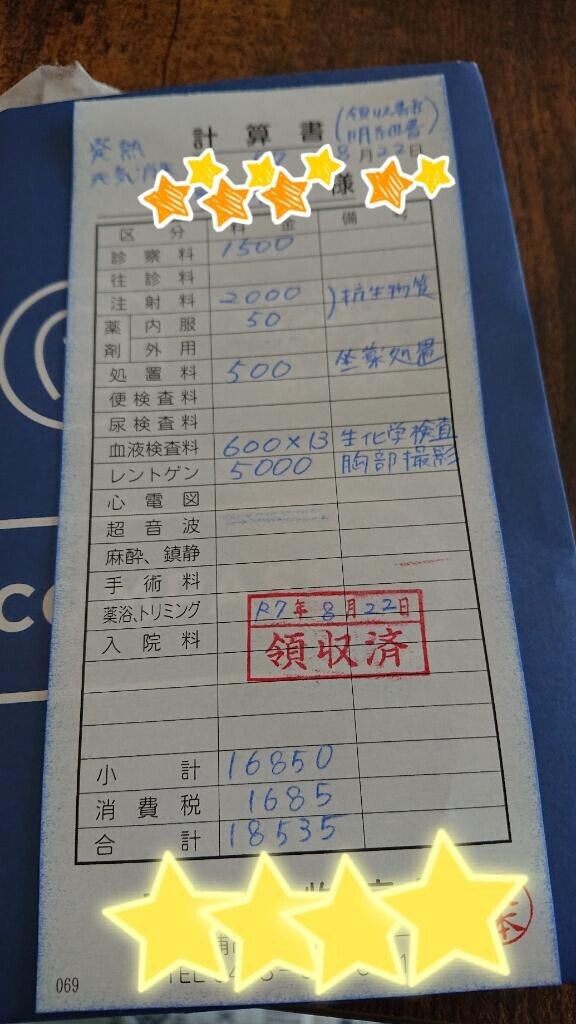 計算書 (領収書 明細書)
発熱
8月22日
様
区分 料金 備考
診察料 1500
往診料
注射料 2000 )抗生物質
薬剤 内服 50
外用
処置料 500 坐薬処置
便検査料
尿検査料
血液検査料 600×13 生化学検査
レントゲン 5000 胸部撮影
心電図
超音波
麻酔、鎮静
手術料
薬浴、トリミング
R7年8月22日
入院料
領収済
小計 16850
消費税 1685
合計 18535
TEL
069